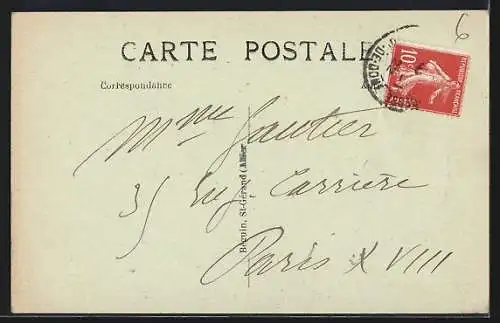 6
CARTE POSTALE
Correspondance
10c
REPUBLIQUE FRANÇAISE
Y-DE-DOM
Mme Gautier
35 rue Carrière
Paris XVIII
Beguin, St-Gérand (Allier